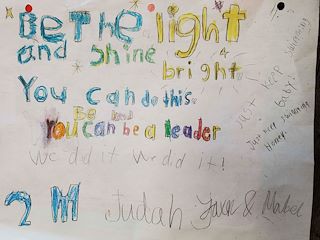 Be the light
and shine
bright
You can do this.
Be kind
You can be a leader
We did it We did it!
2 M Judah & Mabel
Just keep swimming
baby!
Just keep swimming
Honey.